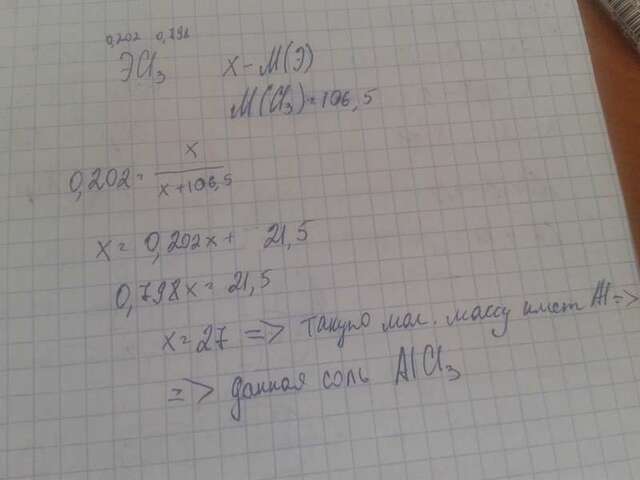 0,202 0,798
ЭCl3 x - M(Э)
M(Cl3) = 106,5
0,202 = x / x + 106,5
x = 0,202x + 21,5
0,798x = 21,5
x = 27 => такую мол. массу имеет Al =>
=> данная соль AlCl3